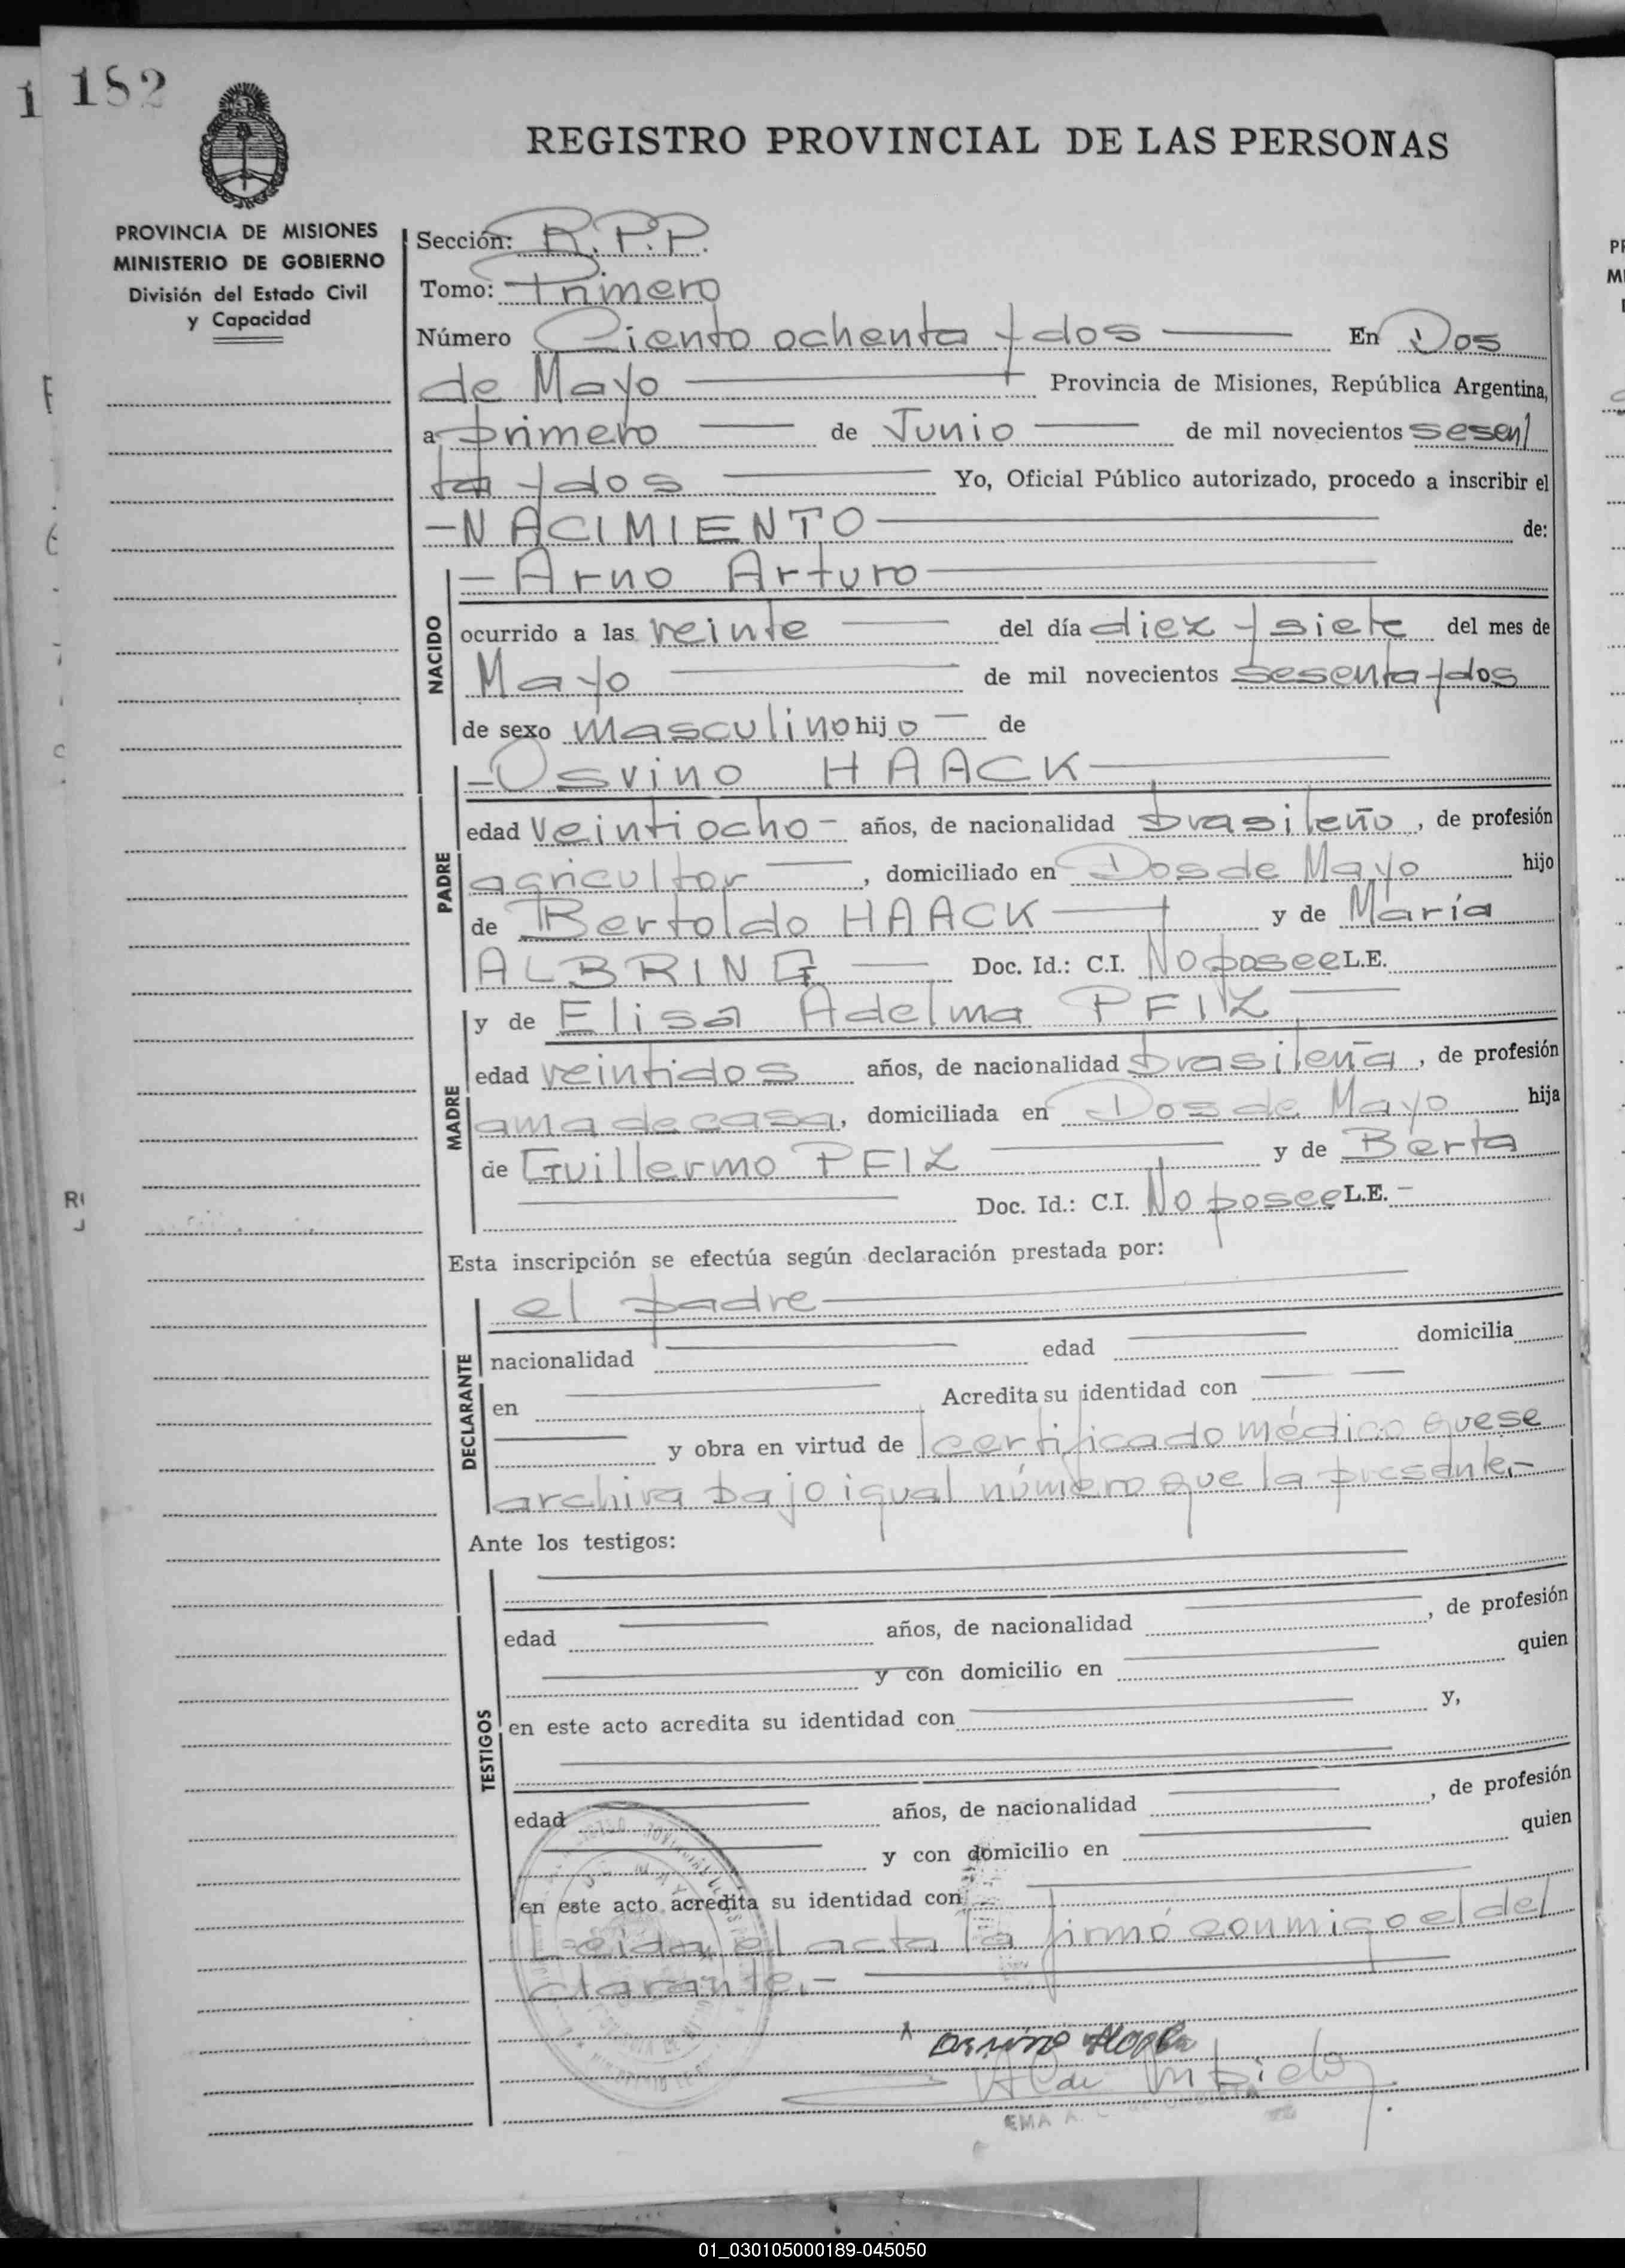 1 182
REGISTRO PROVINCIAL DE LAS PERSONAS
PROVINCIA DE MISIONES
MINISTERIO DE GOBIERNO
División del Estado Civil
y Capacidad
Sección: R.P.P.
Tomo: Primero
Número Ciento ochenta y dos En Dos
de Mayo Provincia de Misiones, República Argentina,
a primero de Junio de mil novecientos sesen
ta y dos Yo, Oficial Público autorizado, procedo a inscribir el
- NACIMIENTO de:
- Arno Arturo
NACIDO
ocurrido a las veinte del día diez y siete del mes de
Mayo de mil novecientos sesenta y dos
de sexo masculino hijo - de
- Osvino HAACK
PADRE
edad veintiocho - años, de nacionalidad brasileño, de profesión
agricultor, domiciliado en Dos de Mayo hijo
de Bertoldo HAACK y de María
ALBRING Doc. Id.: C.I. No posee L.E.
y de Elisa Adelma PFIZ
MADRE
edad veintidos años, de nacionalidad brasileña, de profesión
ama de casa, domiciliada en Dos de Mayo hija
de Guillermo PFIZ y de Berta
Doc. Id.: C.I. No posee L.E. -
Esta inscripción se efectúa según declaración prestada por:
el padre
DECLARANTE
nacionalidad edad domicilia
en Acredita su identidad con
y obra en virtud de l certificado médico que se
archiva bajo igual número que la presente.-
Ante los testigos:
TESTIGOS
edad años, de nacionalidad , de profesión
y con domicilio en quien
en este acto acredita su identidad con y,
edad años, de nacionalidad , de profesión
y con domicilio en quien
en este acto acredita su identidad con
Leida el acta la firmó conmigo el de
clarante.-
EMA A.
01_030105000189-045050